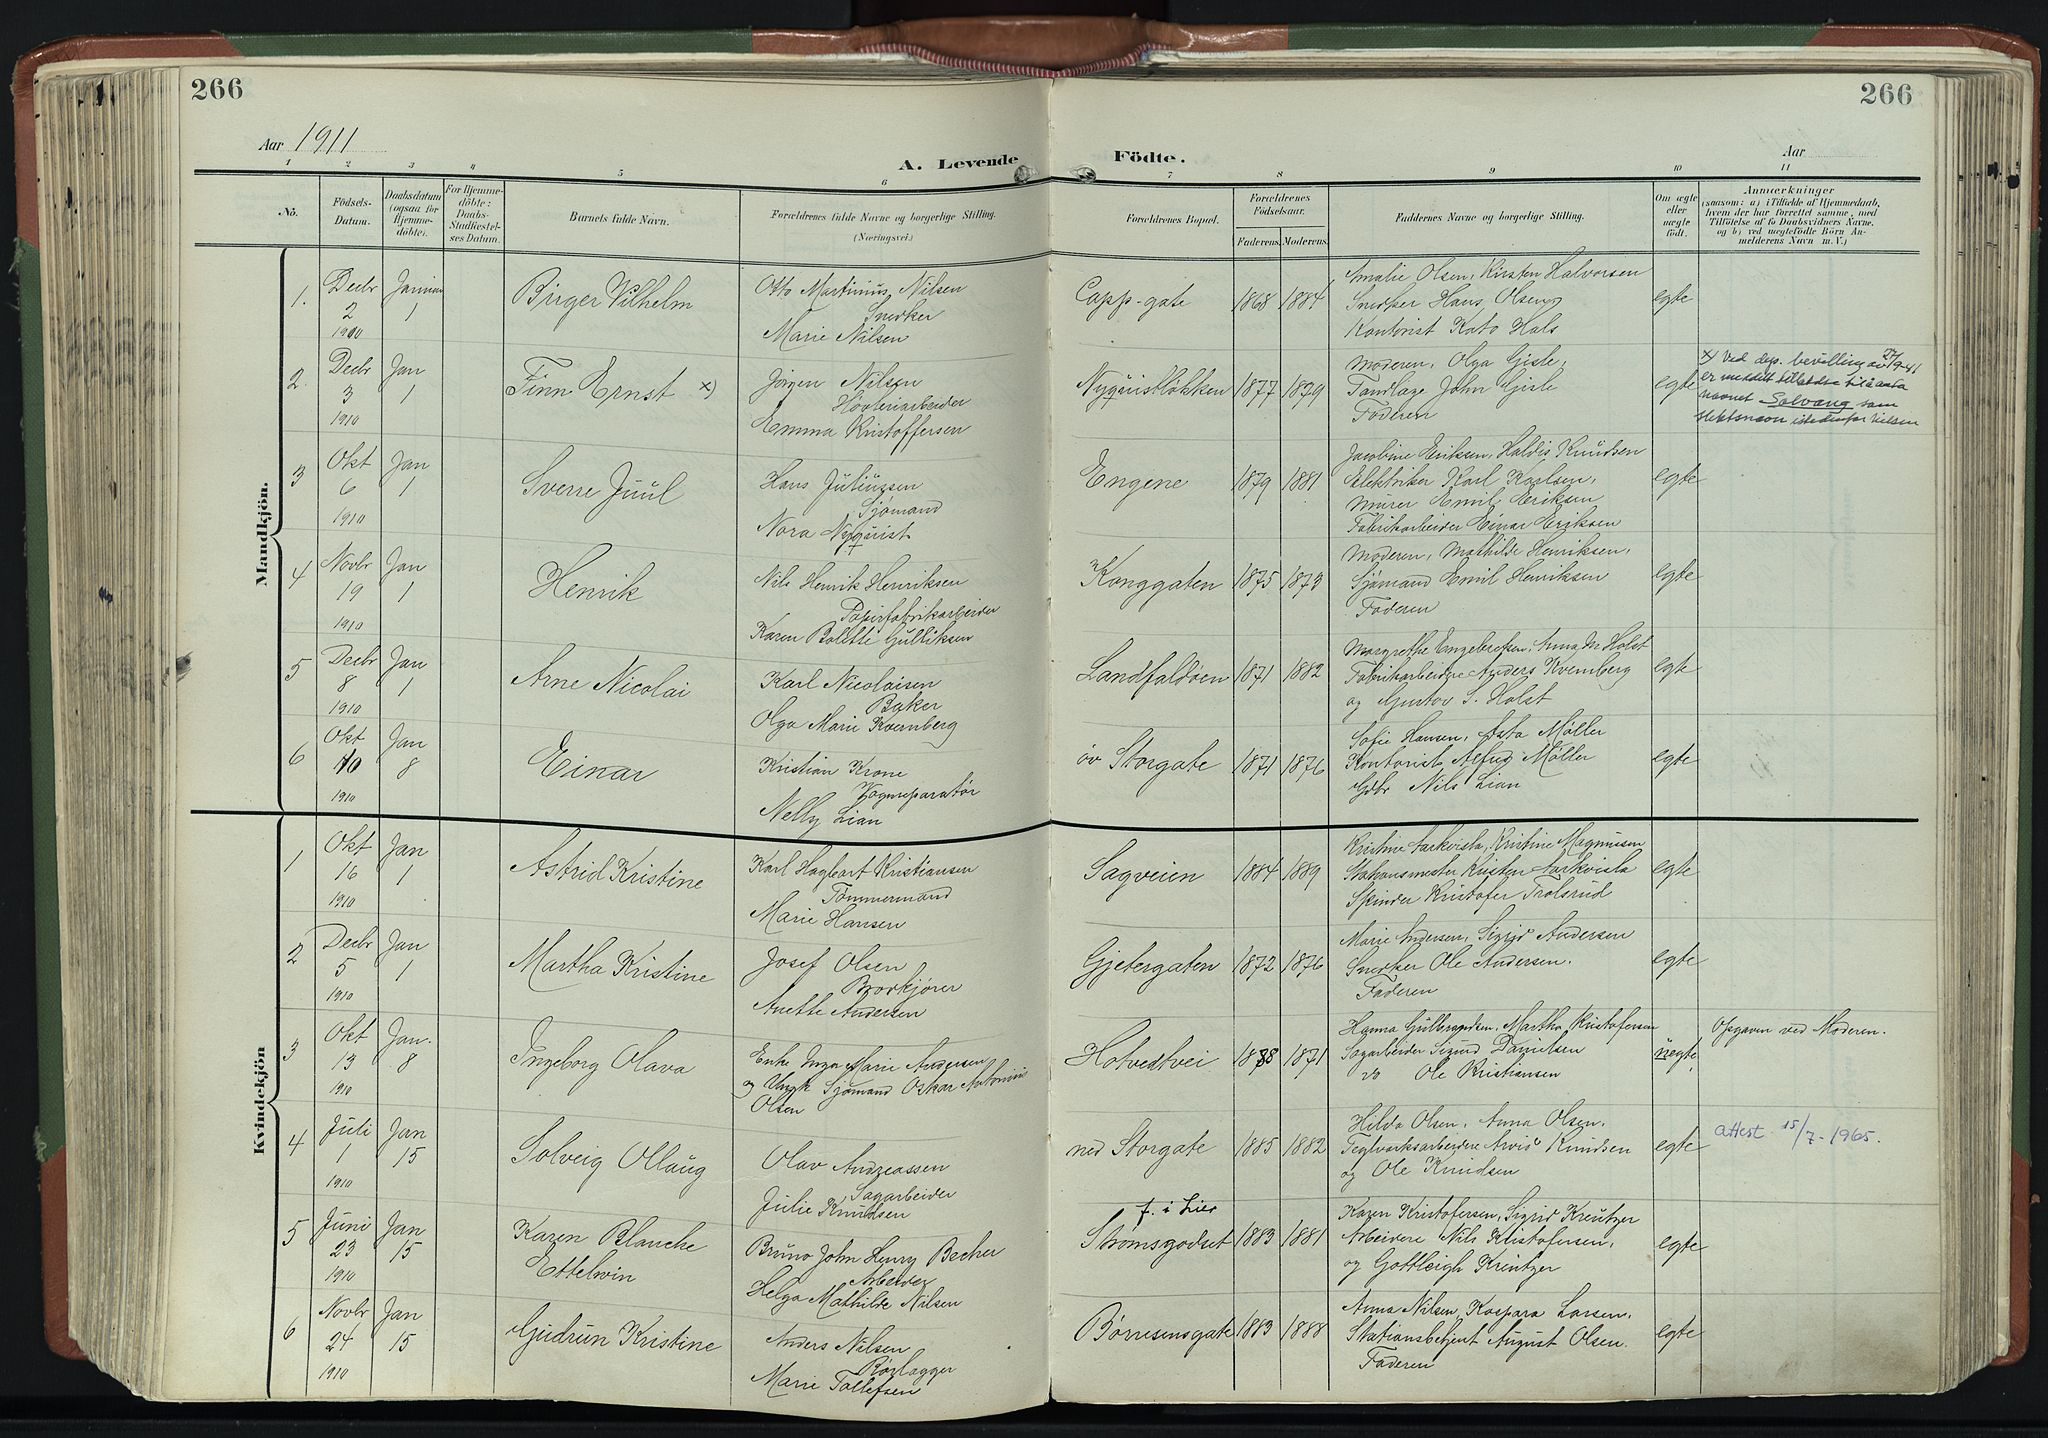 266
266
Aar 1911
A. Levende Födte.
Aar
1 2 3 4 5 6 7 8 9 10 11
No.
Födsels-Datum.
Daabsdatum (ogsaa for Hjemmedöbte).
For Hjemmedöbte: Daabs-Stadfæstelses Datum.
Barnets fulde Navn.
Forældrenes fulde Navne og borgerlige Stilling. (Næringsvei.)
Forældrenes Bopæl.
Forældrenes Födselsaar.
Faderens. Moderens.
Faddernes Navne og borgerlige Stilling.
Om ægte eller uægte födt.
Anmærkninger
(saasom: a) i Tilfælde af Hjemmedaab,
hvem der har forrettet samme, med
Tilföielse af to Daabsvidners Navne.
og b) ved uægtefödte Börn An-
melderens Navn m. V.)
Mandkjön.
1. Decbr 2 1910
Januar 1
Birger Vilhelm
Otto Martinius Nilsen
Snedker
Marie Nilsen
Capp. gate
1868 1884
Amalie Olsen, Kirsten Halvorsen
Snedker Hans Olsen
Kontorist Kato Hals
egte
2. Decbr 3 1910
Jan 1
Finn Ernst x)
Jørgen Nilsen
Emma Kristoffersen
Nyquistløkken
1877 1879
Moderen, Olga Gisle,
Tandlæge John Gisle
Faderen
egte
x) Ved dep. bevilling av 27/9-41
er meddelt tilladelse til å anta
navnet Solvang som
slektsnavn istedenfor Nilsen
3 Okt 6 1910
Jan 1
Sverre Juul
Hans Juliussen
Sjømand
Nora Nyquist
Engene
1879 1881
Jacobine Eriksen, Haldis Knudsen
Elektriker Karl Karlsen,
Murer Emil Eriksen
Fabrikarbeider Einar Eriksen
egte
4 Novbr 19 1910
Jan 1
Henrik
Nils Henrik Henriksen
Papirfabrikarbeider
Karen Bolette Gulliksen
Konggaten
1875 1873
Moderen, Mathilde Henriksen,
Sjømand Emil Henriksen
Faderen
egte
5 Decbr 8 1910
Jan 1
Arne Nicolai
Karl Nicolaisen
Baker
Olga Marie Kvernberg
Landfaldøen
1871 1882
Margrethe Engebretsen, Anna M Holst
Fabrikarbeidere Anders Kvernberg
og Gustav S. Holst
egte
6 Okt 10 1910
Jan 8
Einar
Kristian Krone
Vognreparatør
Nelly Lian
öv Storgate
1871 1876
Sofie Hansen, Asta Møller
Kontorist Møller
Gdbr Nils Lian
egte
Kvindekjön
1 Okt 16 1910
Jan 1
Astrid Kristine
Karl Hagbart Kristiansen
Tømmermand
Marie Hansen
Sagveien
1884 1889
Kristine Aarkvisla, Kristine Magnussen
Stationsmester Kristen Aarkvisla
Spinder Kristofer Trolsrud
egte
2 Decbr 5 1910
Jan 1
Martha Kristine
Josef Olsen
Anette Andersen
Gjetergaten
1872 1876
Marie Andersen, Sigrid Andersen
Snedker Ole Andersen.
Faderen
egte
3 Okt 13 1910
Jan. 8
Ingeborg Olava
Enke Inga Marie Andersen
og Ungk Sjømand Oskar Antonius
Olsen
Hotvedtvei
1888 1871
Hanna Gulbrandsen, Martha Kristofersen
Sagarbeider Sigurd Danielsen
Do Ole Kristiansen
uegte
Opgaven ved Moderen.
4 Juli 1 1910
Jan 15
Solveig Ollaug
Olav Andreassen
Sagarbeider
Julie Knudsen
ned Storgate
1885 1882
Hilda Olsen, Anna Olsen,
Teglverksarbeidere Arvid Knudsen
og Ole Knudsen
egte
attest 15/7-1965.
5 Juni 23 1910
Jan 15
Karen Blanche
Ettelwin
Bruno John Henry Becher
Arbeider
Helga Mathilde Nilsen
f. i Lier
Strømsgodset
1883 1881
Karen Kristofersen, Sigrid Kreutzer
Arbeidere Nils Kristofersen,
og Gottleigh Kreutzer
egte
6 Novbr 24 1910
Jan 15
Gudrun Kristine
Anders Nilsen
Rørlægger
Marie Tollefsen
Børresensgate
1883 1888
Anna Nilsen, Kaspara Larsen,
Stationsbetjent August Olsen.
Faderen
egte